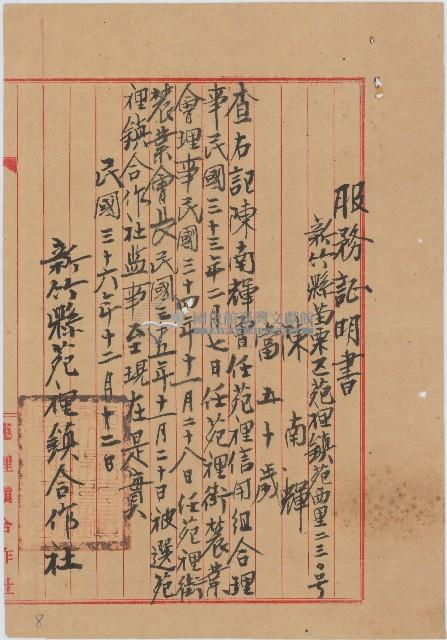 服務証明書
新竹縣苗栗区苑裡鎮苑西里二三〇号
陳南輝
當五十歲
查右記陳南輝曾任苑裡信用組合理
事民國三十三年二月七日任苑裡街農業
會理事民國三十四年十一月二十八日任苑裡街
農業會長民國三五年十一月二十日被選苑
裡鎮合作社監事至現在是實
民國三十六年十二月十二日
新竹縣苑裡鎮合作社
苑裡鎮合作社
國史館臺灣文獻館
8